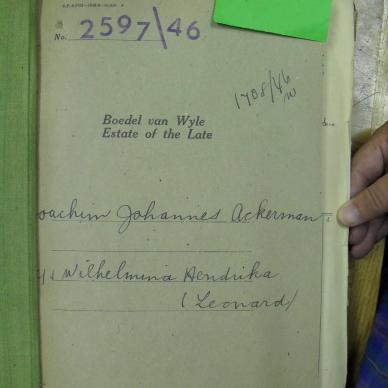 No. 2597\46
1708/46
Boedel van Wyle
Estate of the Late
oachim Johannes Ackerman
Wilhelmina Hendrika
(Leonard)